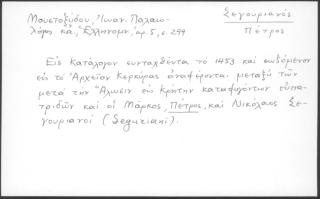 Μουστοξύδου, Ἰωαν. Παλαιο- Σεγουριανός
λόγος κα, Ἑλληνομν, αρ. 5, σ. 299 Πέτρος
Εἰς Κατάλογον συνταχθέντα τό 1453 καί εκδιδόμενον
εἰς το Ἀρχεῖον Κερκύρας ἀναφέρονται μεταξύ τῶν
μετά τήν Ἅλωσιν εἰς Κρήτην καταφυγόντων εὐπα-
τριδῶν καί οἱ Μάρκος, Πέτρος, καί Νικόλαος Σε-
γουριανοί (Seguriani).